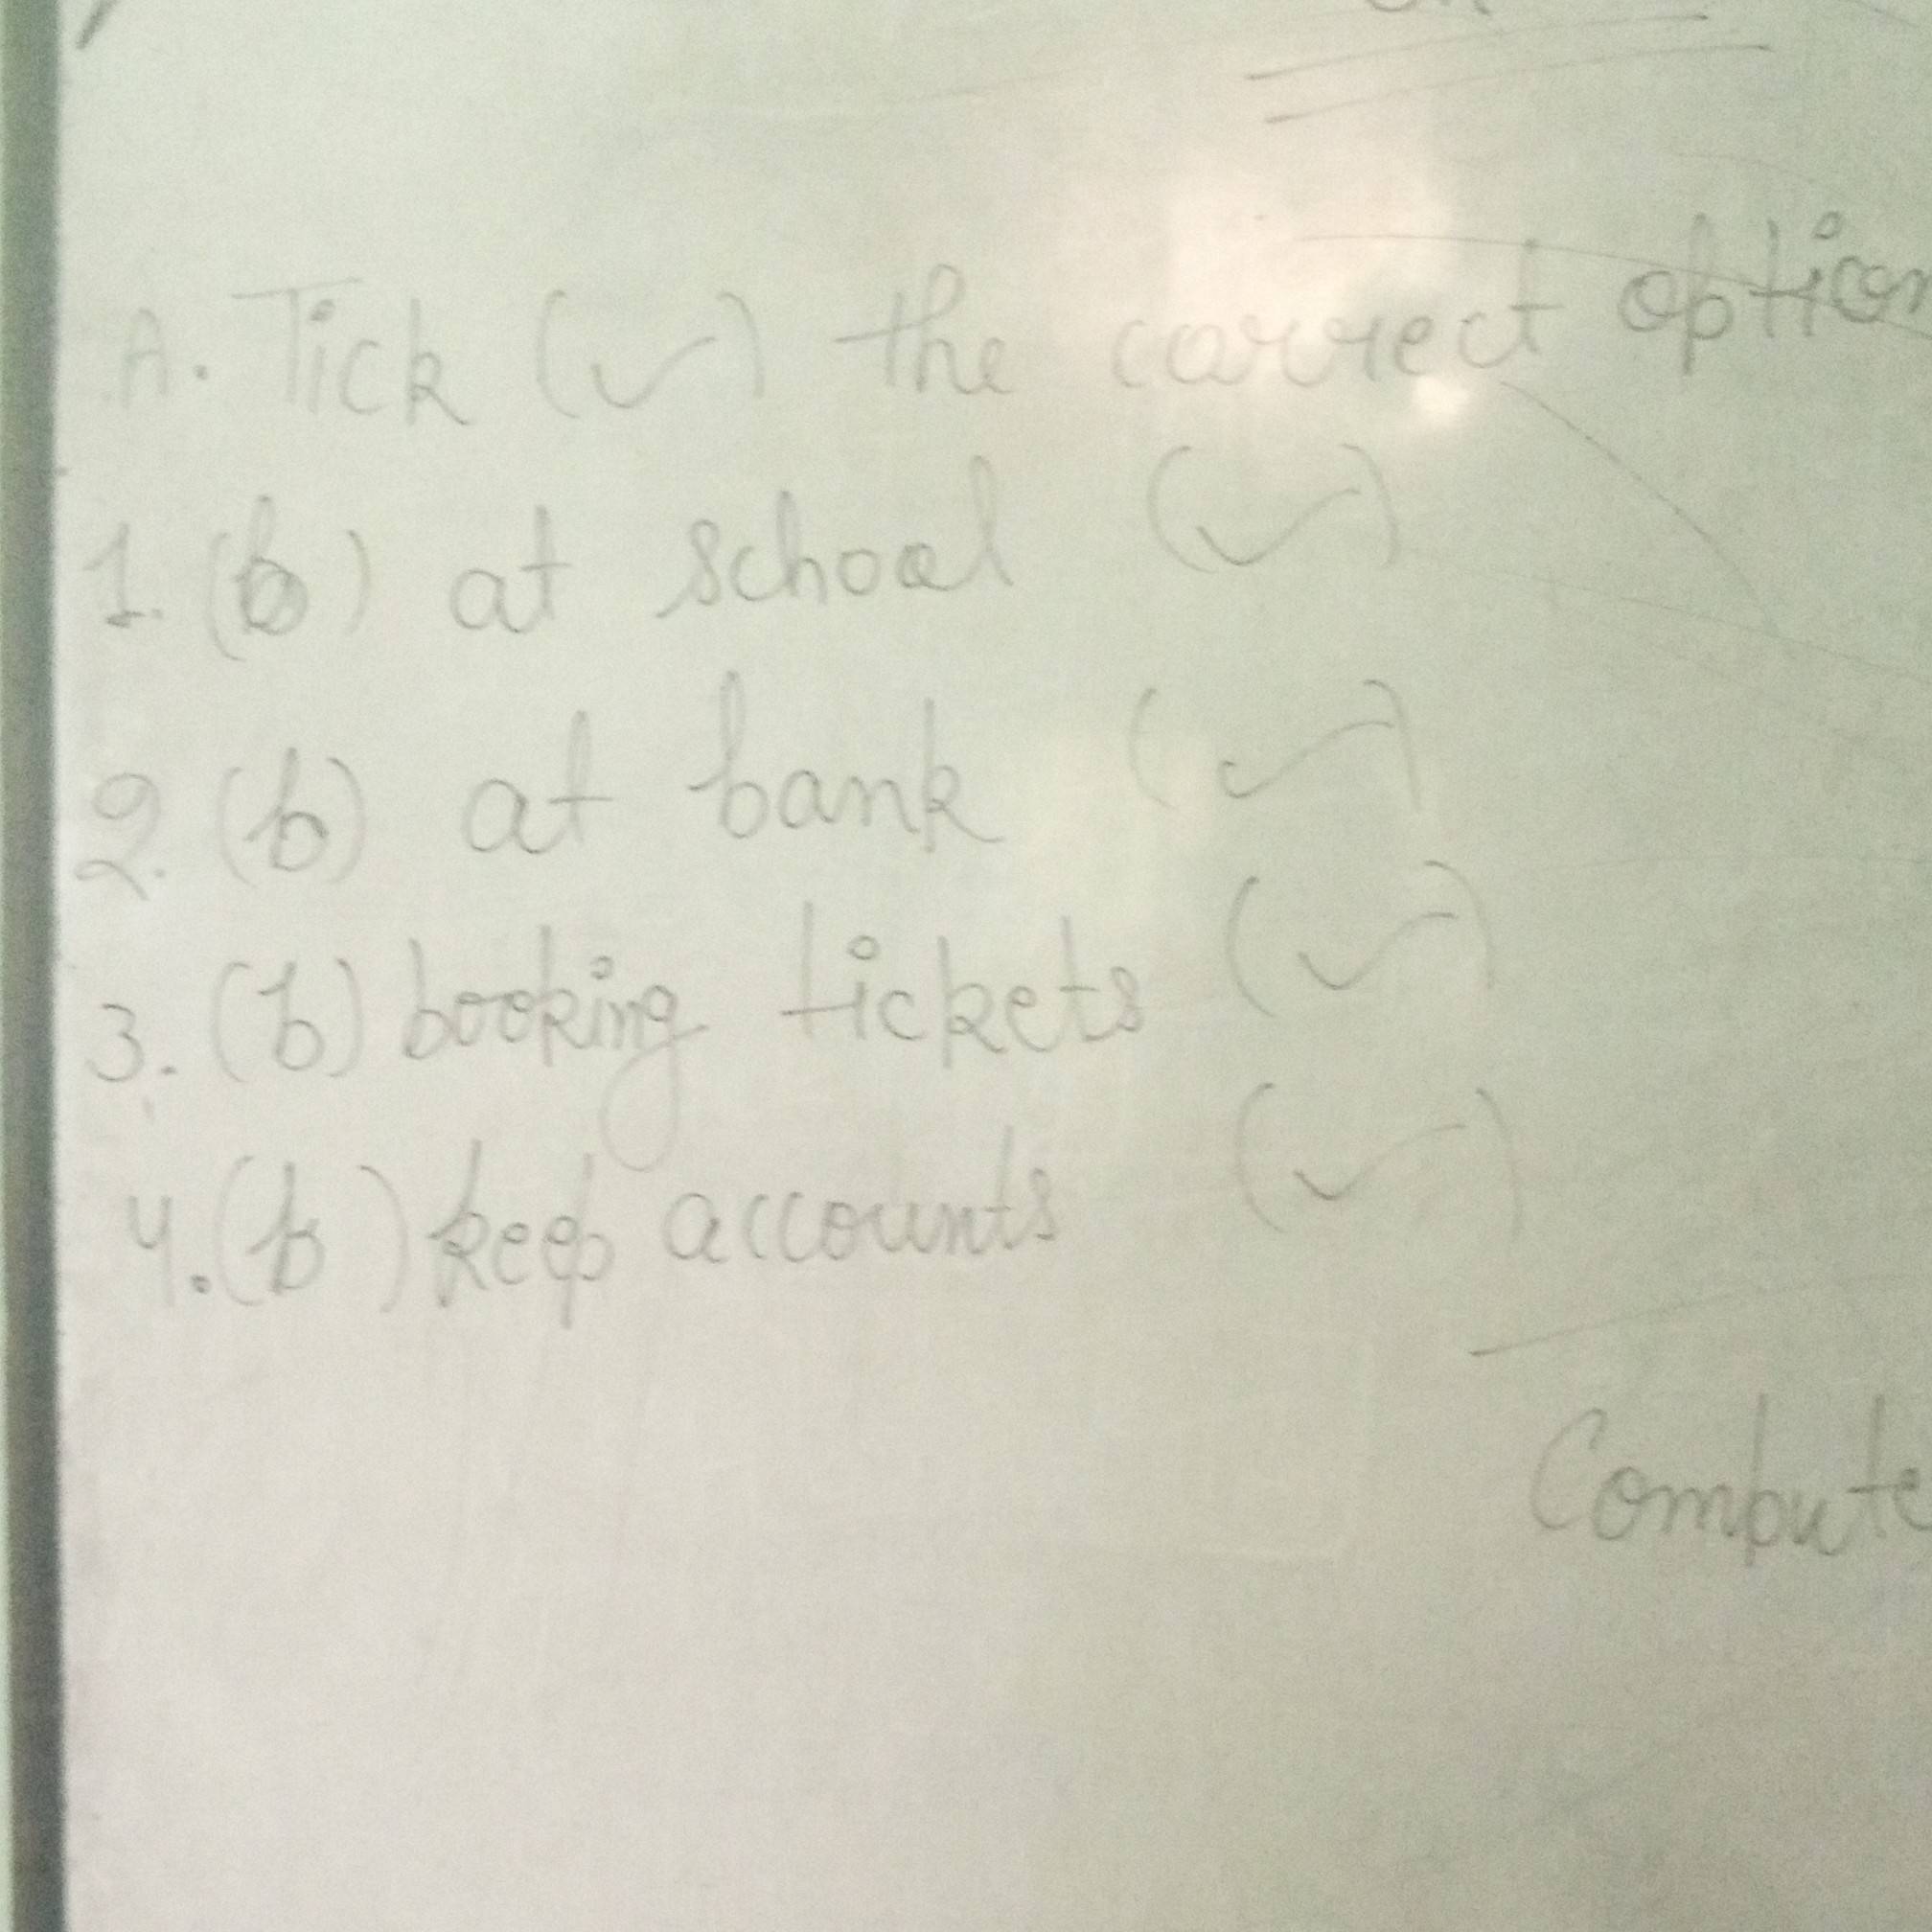 A. Tick (✓) the correct option
1. (b) at school (✓)
2. (b) at bank (✓)
3. (b) booking tickets (✓)
4. (b) keep accounts (✓)
Compute